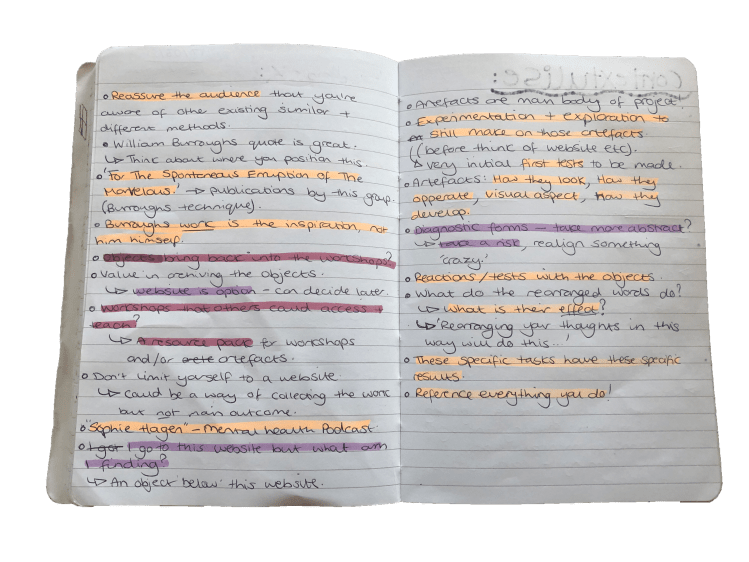 • Reassure the audience that you're
aware of othe existing similar +
different methods.
• William Burroughs quote is great.
↳ Think about where you position this.
• 'For The Spontaneous Eruption of The
Marvelous.' → publications by this group.
(Burroughs technique).
• Burroughs work is the inspiration, not
him himself.
• Objects bring back into the workshops?
• Value in archiving the objects.
↳ website is option - can decide later.
• Workshops that others could access +
teach?
↳ A resource pack for workshops
and/or artefacts.
• Don't limit yourself to a website.
↳ Could be a way of collecting the work
but not main outcome.
• "Sophie Hagen" - Mental health Podcast.
• I get I go to this website but what am
I finding?
↳ An object below this website.
contextulise:
• Artefacts are main body of project!
• Experimentation + exploration to
still make on those artefacts.
((before think of website etc).
↳ very initial first tests to be made.
• Artefacts: How they look, How they
opperate, visual aspect, how they
develop.
• Diagnostic forms - take more abstract?
↳ take a risk, realign something
'crazy.'
• Reactions/tests with the objects.
• What do the rearranged words do?
↳ What is their effect?
↳ 'Rearranging your thoughts in this
way will do this...'
• These specific tasks have these specific
results.
• Reference everything you do!